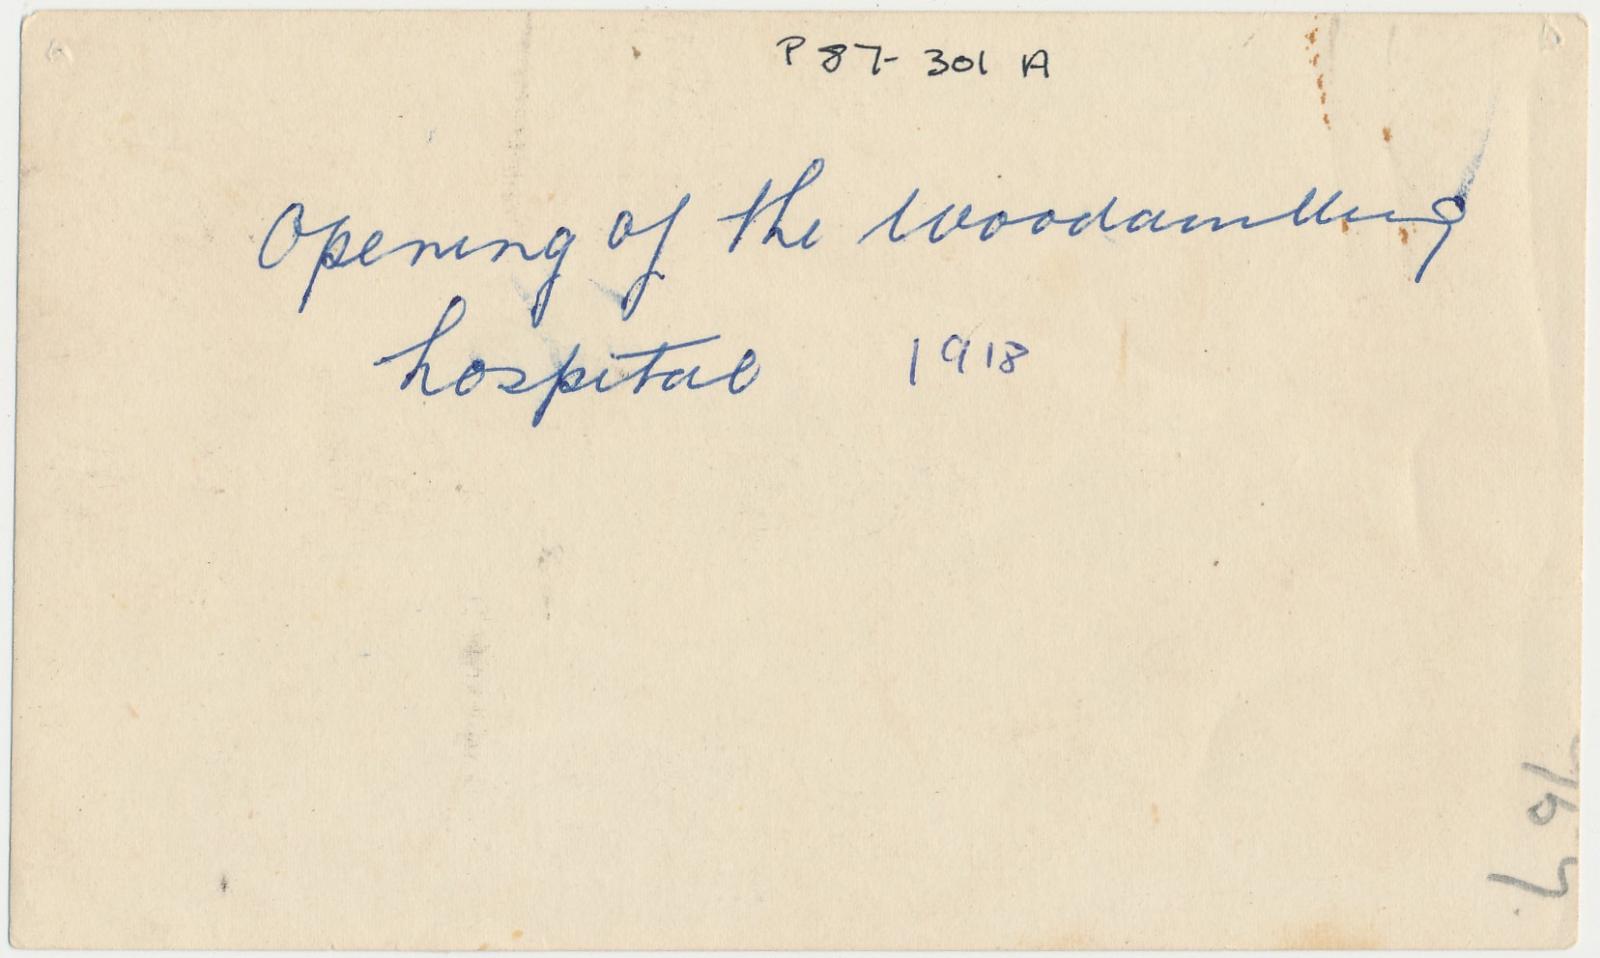 P87-301 A
Opening of the Woodanilling
hospital 1918